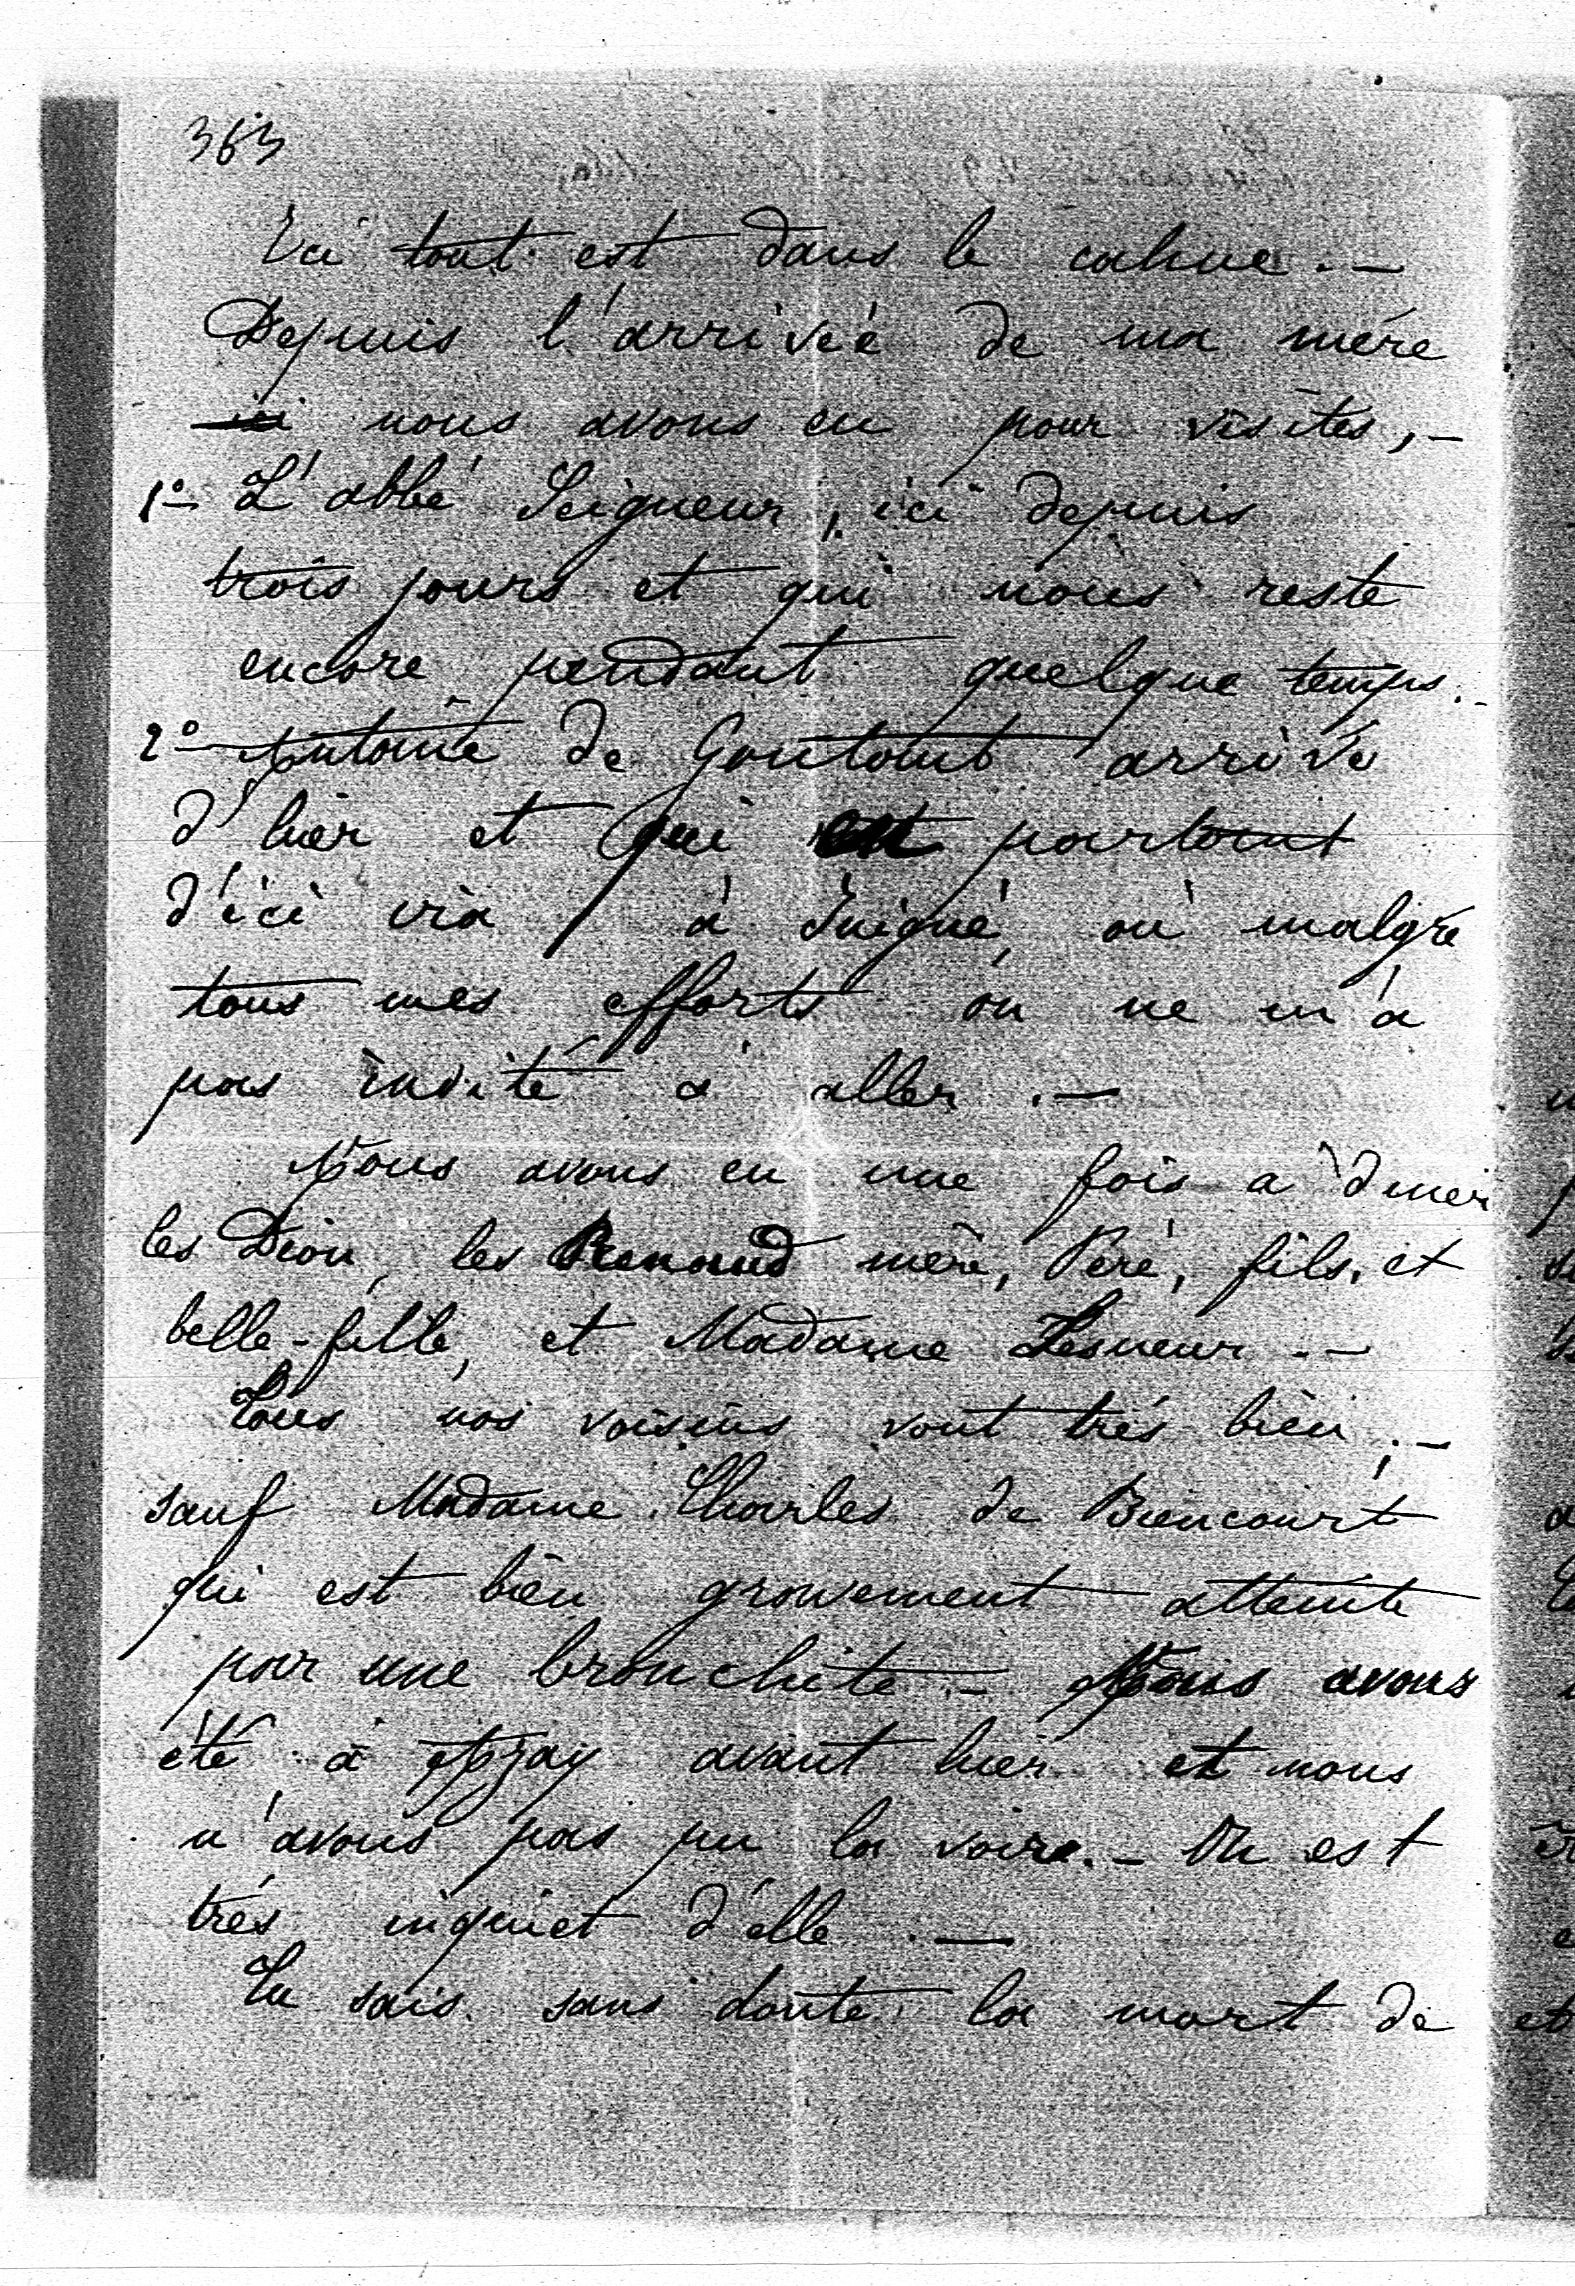 363
Ici tout est dans le calme. —
Depuis l'arrivée de ma mère
ici nous avons eu pour visites, —
1° — L'abbé Seigneur, ici depuis
trois jours et qui nous reste
encore pendant quelque temps. —
2° — Antoine de Gontaut arrivé
d'hier et qui en partant
d'ici ira à Juigné, où malgré
tous mes efforts on ne m'a
pas invité à aller. —
Nous avons eu une fois a diner
les Dion, les Renaud mère, Père, fils, et
belle-fille, et Madame Lesueur. —
Tous nos voisins vont très bien, —
sauf Madame Charles de Biencourt
qui est bien gravement atteinte
par une bronchite. — Nous avons
été à Azay avant hier et nous
n'avons pas pu la voire. — On est
très inquiet d'elle. —
Tu sais sans doute la mort de